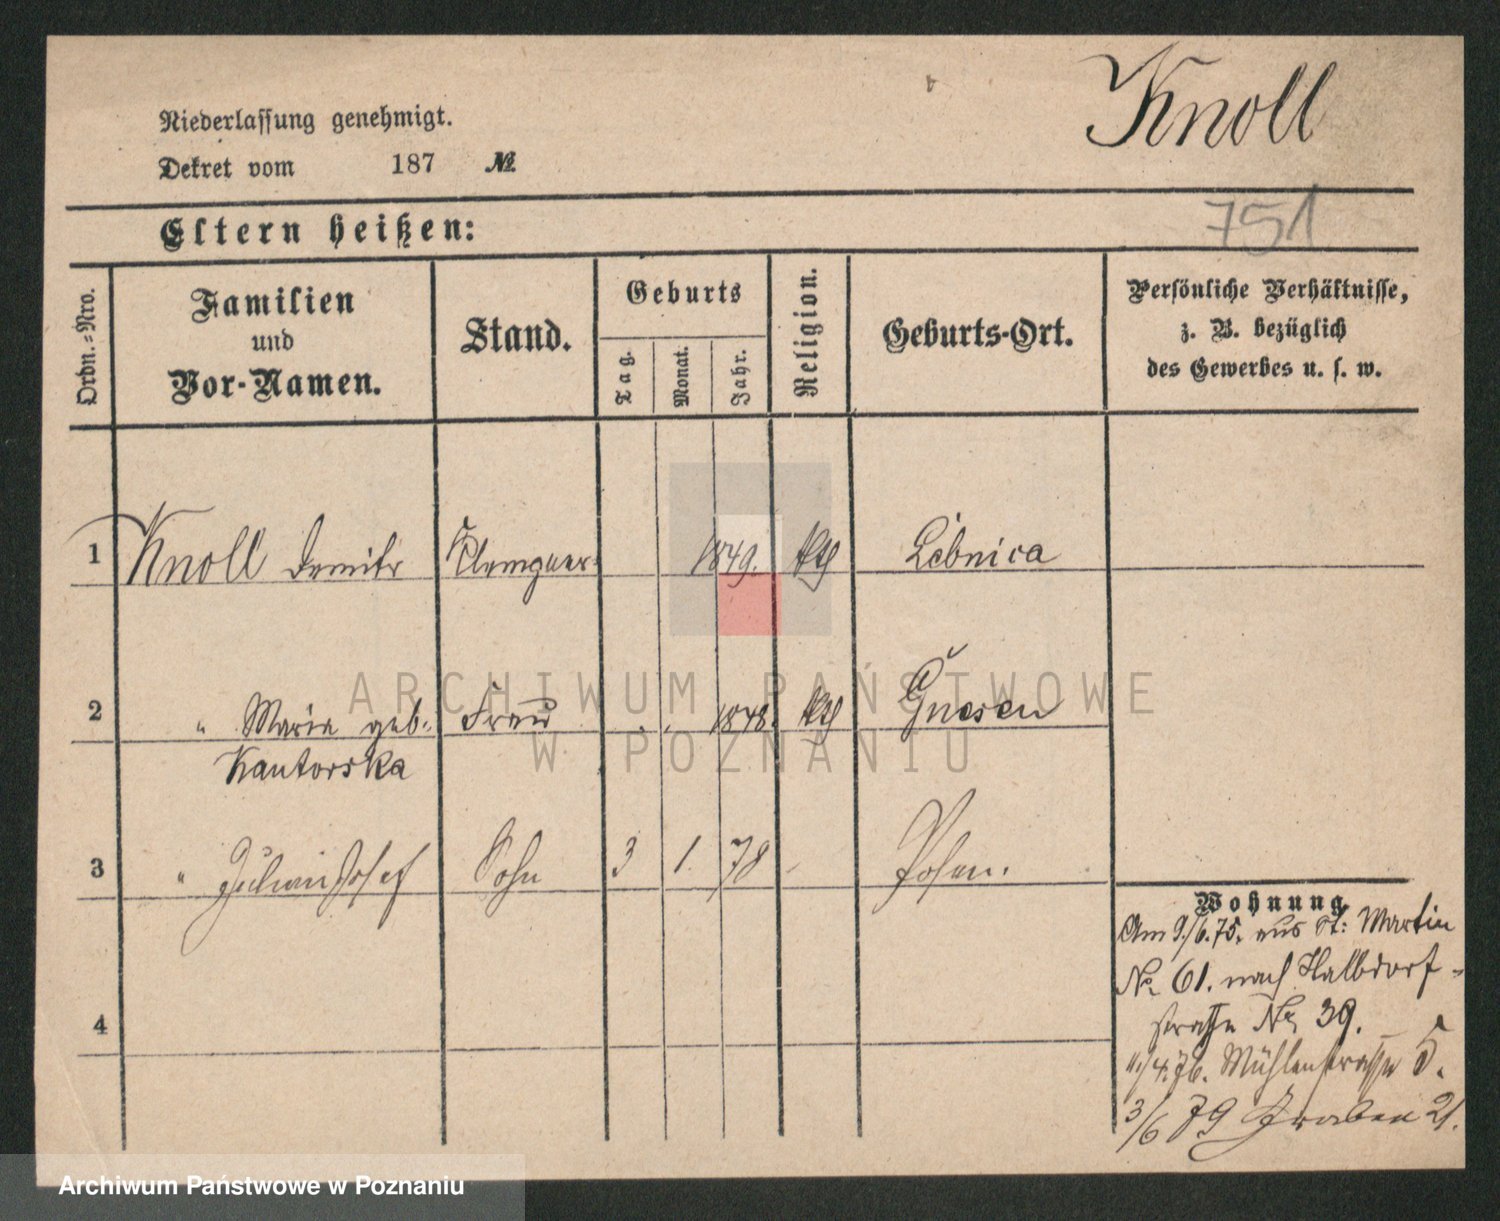 Knoll
Niederlassung genehmigt.
Dekret vom 187 №
751
Eltern heißen:
Ordn.-Nro.
Familien
und
Vor-Namen.
Stand.
Geburts
Tag.
Monat.
Jahr.
Religion.
Geburts-Ort.
Persönliche Verhältnisse,
z. B. bezüglich
des Gewerbes u. s. w.
1 Knoll Klempner 1849. kth Libnica
2 " Maria geb. Frau " " 1848. kth Gnesen
Kantorska
3 " Julian Josef Sohn 3 1. 78 - Posen.
4
Wohnung
Am 9./6.75. aus St: Martin
No 61. nach Halbdorf-
straße No 39.
11./4.76. Mühlenstraße 5.
3/6 79 Graben 21.
ARCHIWUM PAŃSTWOWE
W POZNANIU
Archiwum Państwowe w Poznaniu